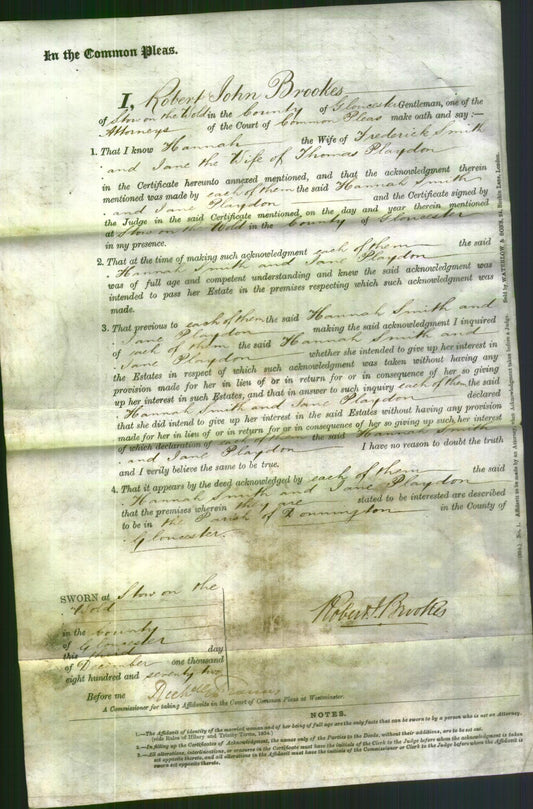 In the Common Pleas.
I, Robert John Brookes
of Stow on the Wold in the County of Gloucester Gentleman, one of the
Attorneys of the Court of Common Pleas make oath and say :—
1. That I know Hannah the Wife of Frederick Smith
and Jane the Wife of Thomas Playdon
in the Certificate hereunto annexed mentioned, and that the acknowledgment therein
mentioned was made by each of them the said Hannah Smith
and Jane Playdon and the Certificate signed by
the Judge in the said Certificate mentioned, on the day and year therein mentioned
at Stow on the Wold in the County of Gloucester
in my presence.
2. That at the time of making such acknowledgment each of them the said
Hannah Smith and Jane Playdon
was of full age and competent understanding and knew the said acknowledgment was
intended to pass her Estate in the premises respecting which such acknowledgment was
made.
3. That previous to each of them the said Hannah Smith and
Jane Playdon making the said acknowledgment I inquired
of each of them the said Hannah Smith and
Jane Playdon whether she intended to give up her interest in
the Estates in respect of which such acknowledgment was taken without having any
provision made for her in lieu of or in return for or in consequence of her so giving
up her interest in such Estates, and that in answer to such inquiry each of them the said
Hannah Smith and Jane Playdon declared
that she did intend to give up her interest in the said Estates without having any provision
made for her in lieu of or in return for or in consequence of her so giving up such interest
of which declaration of each of them the said Hannah Smith
and Jane Playdon I have no reason to doubt the truth
and I verily believe the same to be true.
4. That it appears by the deed acknowledged by each of them the said
Hannah Smith and Jane Playdon
that the premises wherein they are stated to be interested are described
to be in the Parish of Donnington in the County of
Gloucester.
SWORN at Stow on the
Wold
in the County
of Gloucester
this day
of December one thousand
eight hundred and seventy two
Before me
Robert J. Brookes
A Commissioner for taking Affidavits in the Court of Common Pleas at Westminster.
NOTES.
1.—The Affidavit of identity of the married woman and of her being of full age are the only facts that can be sworn to by a person who is not an Attorney.
(vide Rules of Hilary and Trinity Terms, 1834.)
2.—In filling up the Certificates of Acknowledgment, the names only of the Parties to the Deeds, without their additions, are to be set out.
3.—All alterations, interlineations, or erasures in the Certificate must have the initials of the Clerk to the Judge before whom the acknowledgment is taken
set opposite thereto, and all alterations in the Affidavit must have the initials of the Commissioner or Clerk to the Judge before whom the Affidavit is
sworn set opposite thereto.
No. 1. Affidavit to be made by an Attorney Acknowledgment taken before a Judge.
Sold by WATERLOW & SONS, Lane, London.